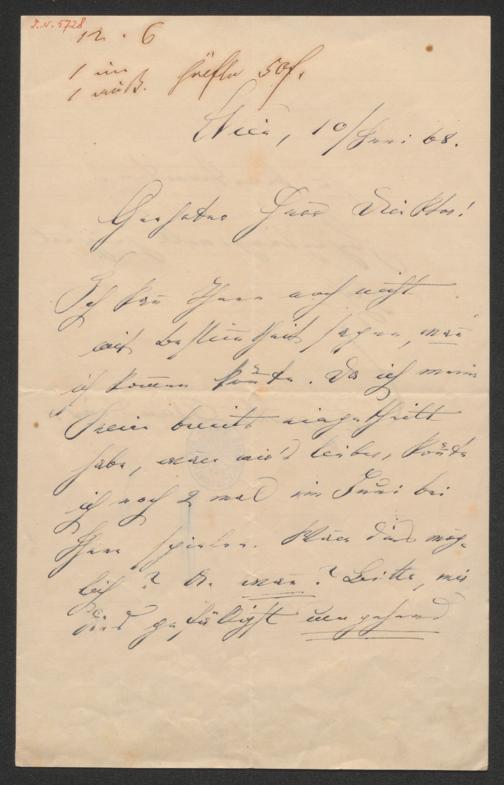 I.N. 5728
12. 6
1 im
1 Hälfte 50f.
Wien, 10/Juni 68.
Geehrter Herr Direktor!
Ich kan Ihnen noch nicht
mit Bestimtheit sagen, wan
ich kommen könte. Da ich meine
Ferien bereits eingetheilt
habe, wäre mir's lieber, könte
ich noch 2 mal im Juni bei
Ihnen spielen. Wäre dies mög-
lich? U. wan? Bitte, mir
dies gefälligst umgehend